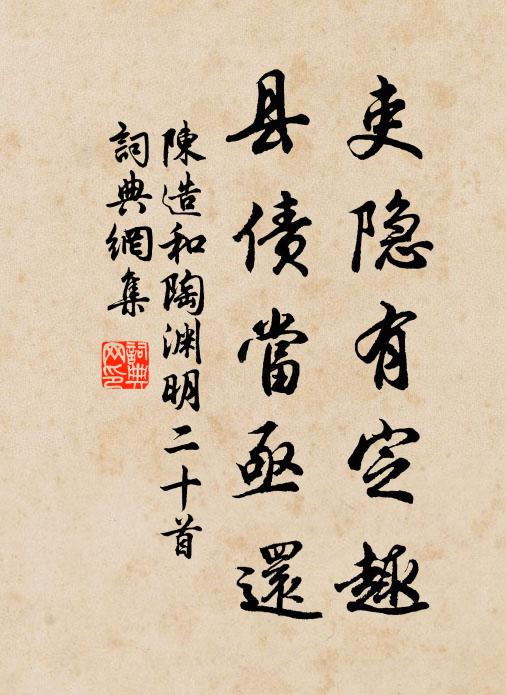 吏隐有定趣
县债當亟還
陳造和陶渊明二十首
詞典網集
詞典
网印